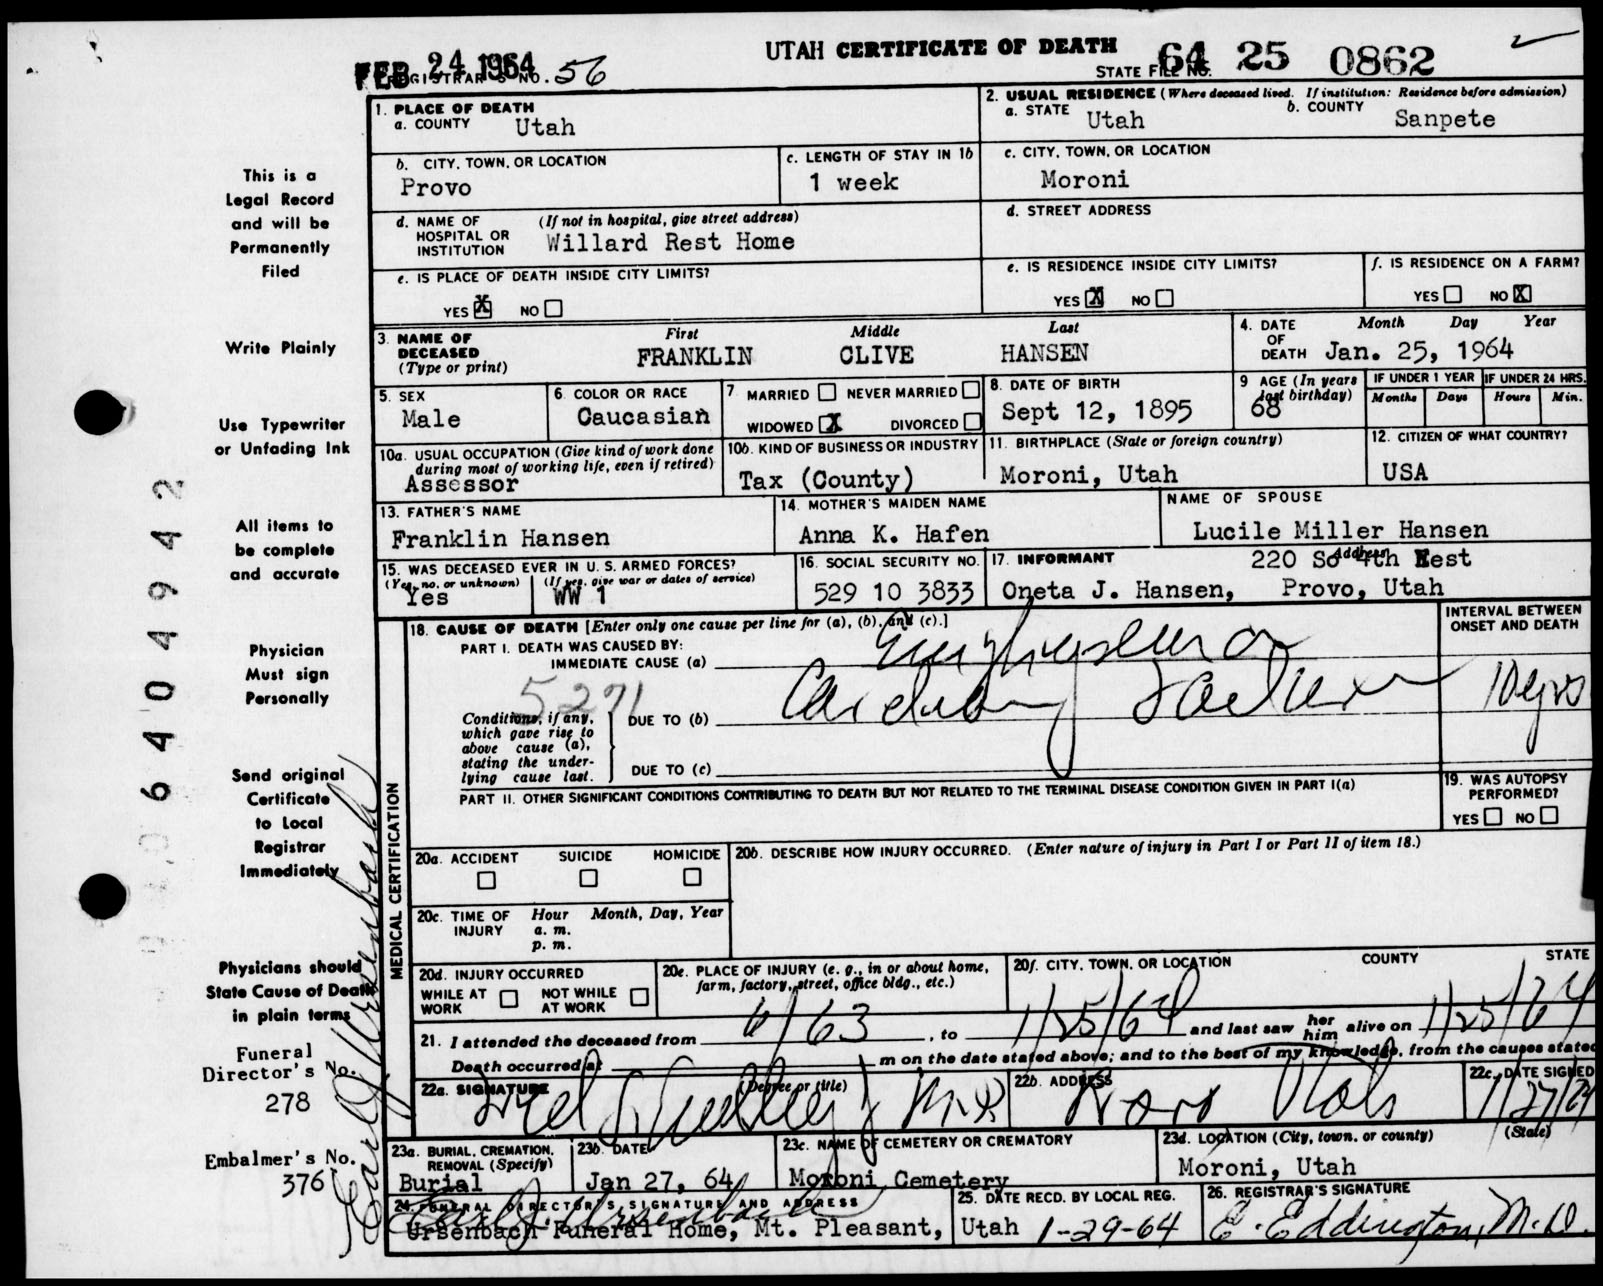 UTAH CERTIFICATE OF DEATH
FEB 24 1964
REGISTRAR'S NO. 56
STATE FILE NO. 64 25 0862
1. PLACE OF DEATH
a. COUNTY Utah
2. USUAL RESIDENCE (Where deceased lived. If institution: Residence before admission)
a. STATE Utah b. COUNTY Sanpete
b. CITY, TOWN, OR LOCATION Provo
c. LENGTH OF STAY IN 1b 1 week
c. CITY, TOWN, OR LOCATION Moroni
d. NAME OF HOSPITAL OR INSTITUTION (If not in hospital, give street address) Willard Rest Home
d. STREET ADDRESS
e. IS PLACE OF DEATH INSIDE CITY LIMITS?
YES X NO
e. IS RESIDENCE INSIDE CITY LIMITS?
YES X NO
f. IS RESIDENCE ON A FARM?
YES NO X
3. NAME OF DECEASED (Type or print)
First Middle Last
FRANKLIN CLIVE HANSEN
4. DATE OF DEATH Month Day Year
Jan. 25, 1964
5. SEX Male
6. COLOR OR RACE Caucasian
7 MARRIED NEVER MARRIED
WIDOWED X DIVORCED
8. DATE OF BIRTH Sept 12, 1895
9 AGE (In years last birthday) 68
IF UNDER 1 YEAR Months Days
IF UNDER 24 HRS. Hours Min.
10a. USUAL OCCUPATION (Give kind of work done during most of working life, even if retired) Assessor
10b. KIND OF BUSINESS OR INDUSTRY Tax (County)
11. BIRTHPLACE (State or foreign country) Moroni, Utah
12. CITIZEN OF WHAT COUNTRY? USA
13. FATHER'S NAME Franklin Hansen
14. MOTHER'S MAIDEN NAME Anna K. Hafen
NAME OF SPOUSE Lucile Miller Hansen
15. WAS DECEASED EVER IN U. S. ARMED FORCES?
(Yes, no, or unknown) Yes (If yes, give war or dates of service) WW 1
16. SOCIAL SECURITY NO. 529 10 3833
17. INFORMANT Address
220 So 4th West
Oneta J. Hansen, Provo, Utah
MEDICAL CERTIFICATION
18. CAUSE OF DEATH [Enter only one cause per line for (a), (b), and (c).]
INTERVAL BETWEEN ONSET AND DEATH
PART I. DEATH WAS CAUSED BY:
IMMEDIATE CAUSE (a) Emphysema
5271
Conditions, if any, which gave rise to above cause (a), stating the underlying cause last.
DUE TO (b) Cardiac Failure 10 yrs
DUE TO (c)
PART II. OTHER SIGNIFICANT CONDITIONS CONTRIBUTING TO DEATH BUT NOT RELATED TO THE TERMINAL DISEASE CONDITION GIVEN IN PART I(a)
19. WAS AUTOPSY PERFORMED?
YES NO
20a. ACCIDENT SUICIDE HOMICIDE
20b. DESCRIBE HOW INJURY OCCURRED. (Enter nature of injury in Part I or Part II of item 18.)
20c. TIME OF INJURY Hour Month, Day, Year
a. m.
p. m.
20d. INJURY OCCURRED
WHILE AT WORK NOT WHILE AT WORK
20e. PLACE OF INJURY (e. g., in or about home, farm, factory, street, office bldg., etc.)
20f. CITY, TOWN, OR LOCATION COUNTY STATE
21. I attended the deceased from 6/63, to 1/25/64 and last saw her him alive on 1/25/64
Death occurred at m on the date stated above; and to the best of my knowledge, from the causes stated
22a. SIGNATURE (Degree or title)
22b. ADDRESS Provo Utah
22c. DATE SIGNED 1/27/64
23a. BURIAL, CREMATION, REMOVAL (Specify) Burial
23b. DATE Jan 27, 64
23c. NAME OF CEMETERY OR CREMATORY Moroni Cemetery
23d. LOCATION (City, town, or county) (State) Moroni, Utah
24. FUNERAL DIRECTOR'S SIGNATURE AND ADDRESS
Ursenbach Funeral Home, Mt. Pleasant, Utah
25. DATE RECD. BY LOCAL REG. 1-29-64
26. REGISTRAR'S SIGNATURE E. Eddington, M.D.
This is a
Legal Record
and will be
Permanently
Filed
Write Plainly
Use Typewriter
or Unfading Ink
All items to
be complete
and accurate
Physician
Must sign
Personally
Send original
Certificate
to Local
Registrar
Immediately
Physicians should
State Cause of Death
in plain terms
Funeral
Director's No.
278
Embalmer's No.
376
Earl J Ursenbach